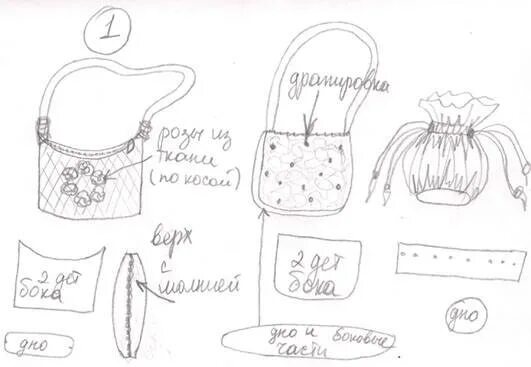 1
драпировка
розы из
ткани
(по косой)
верх
с
молнией
2 дет
бока
дно
2 дет
бока
дно и боковые
части
дно